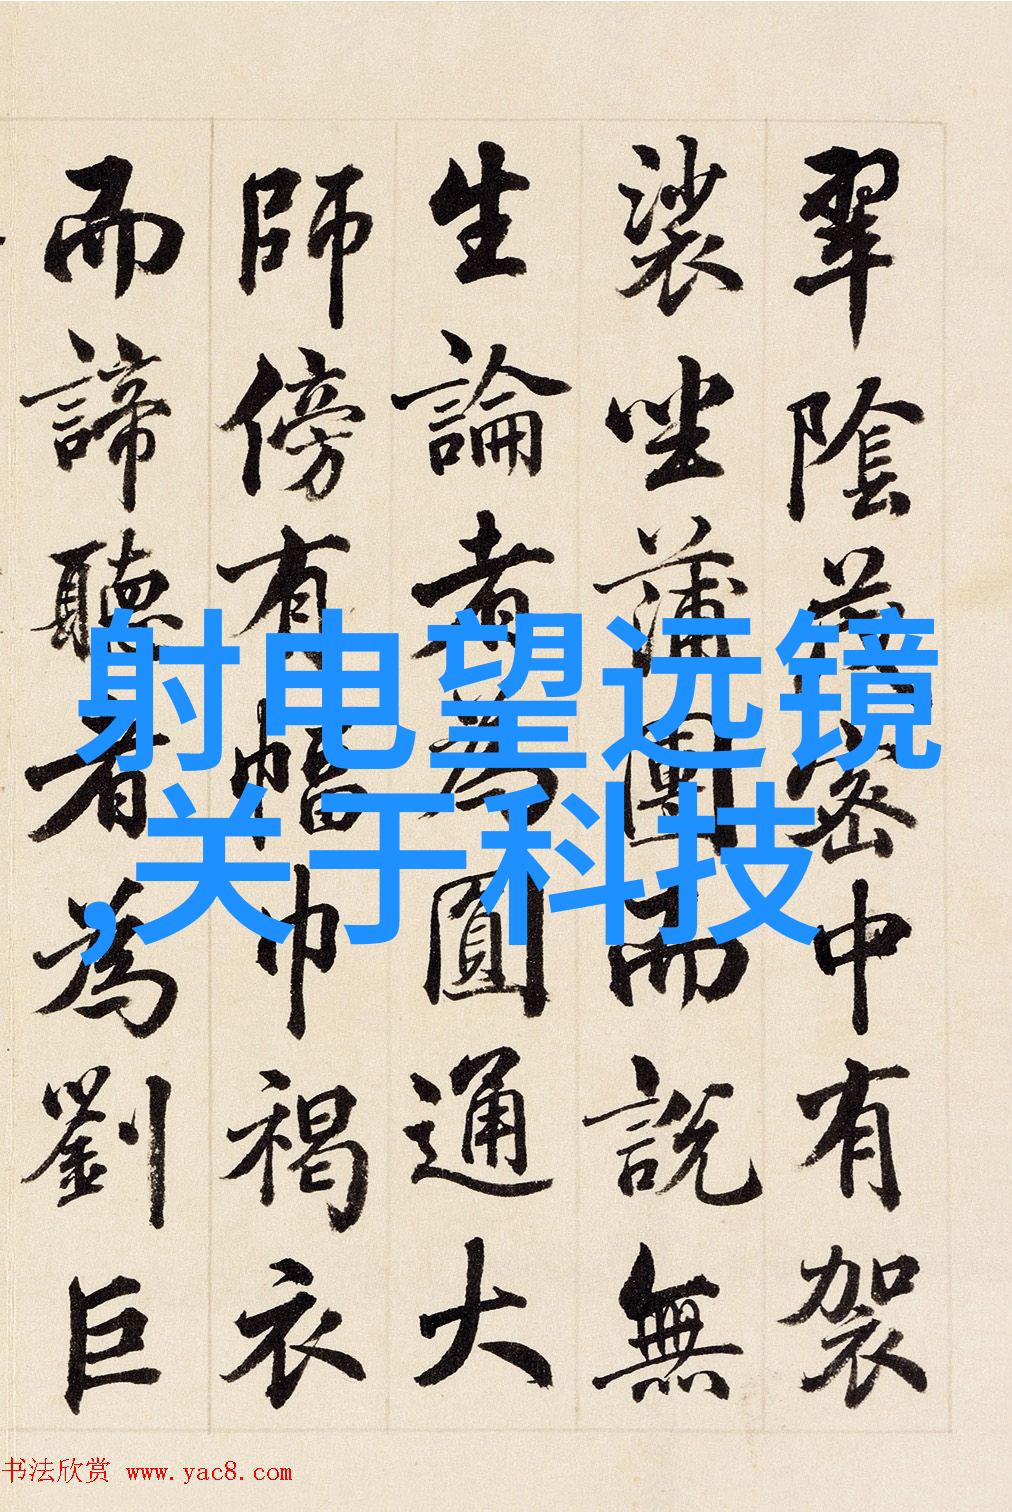 翠陰茂密中有袈
裟坐蒲團而說無
生論者為圓通大
師傍有幅巾褐衣
而諦聽者為劉巨
射电望远镜
,关于科技
书法欣赏 www.yac8.com